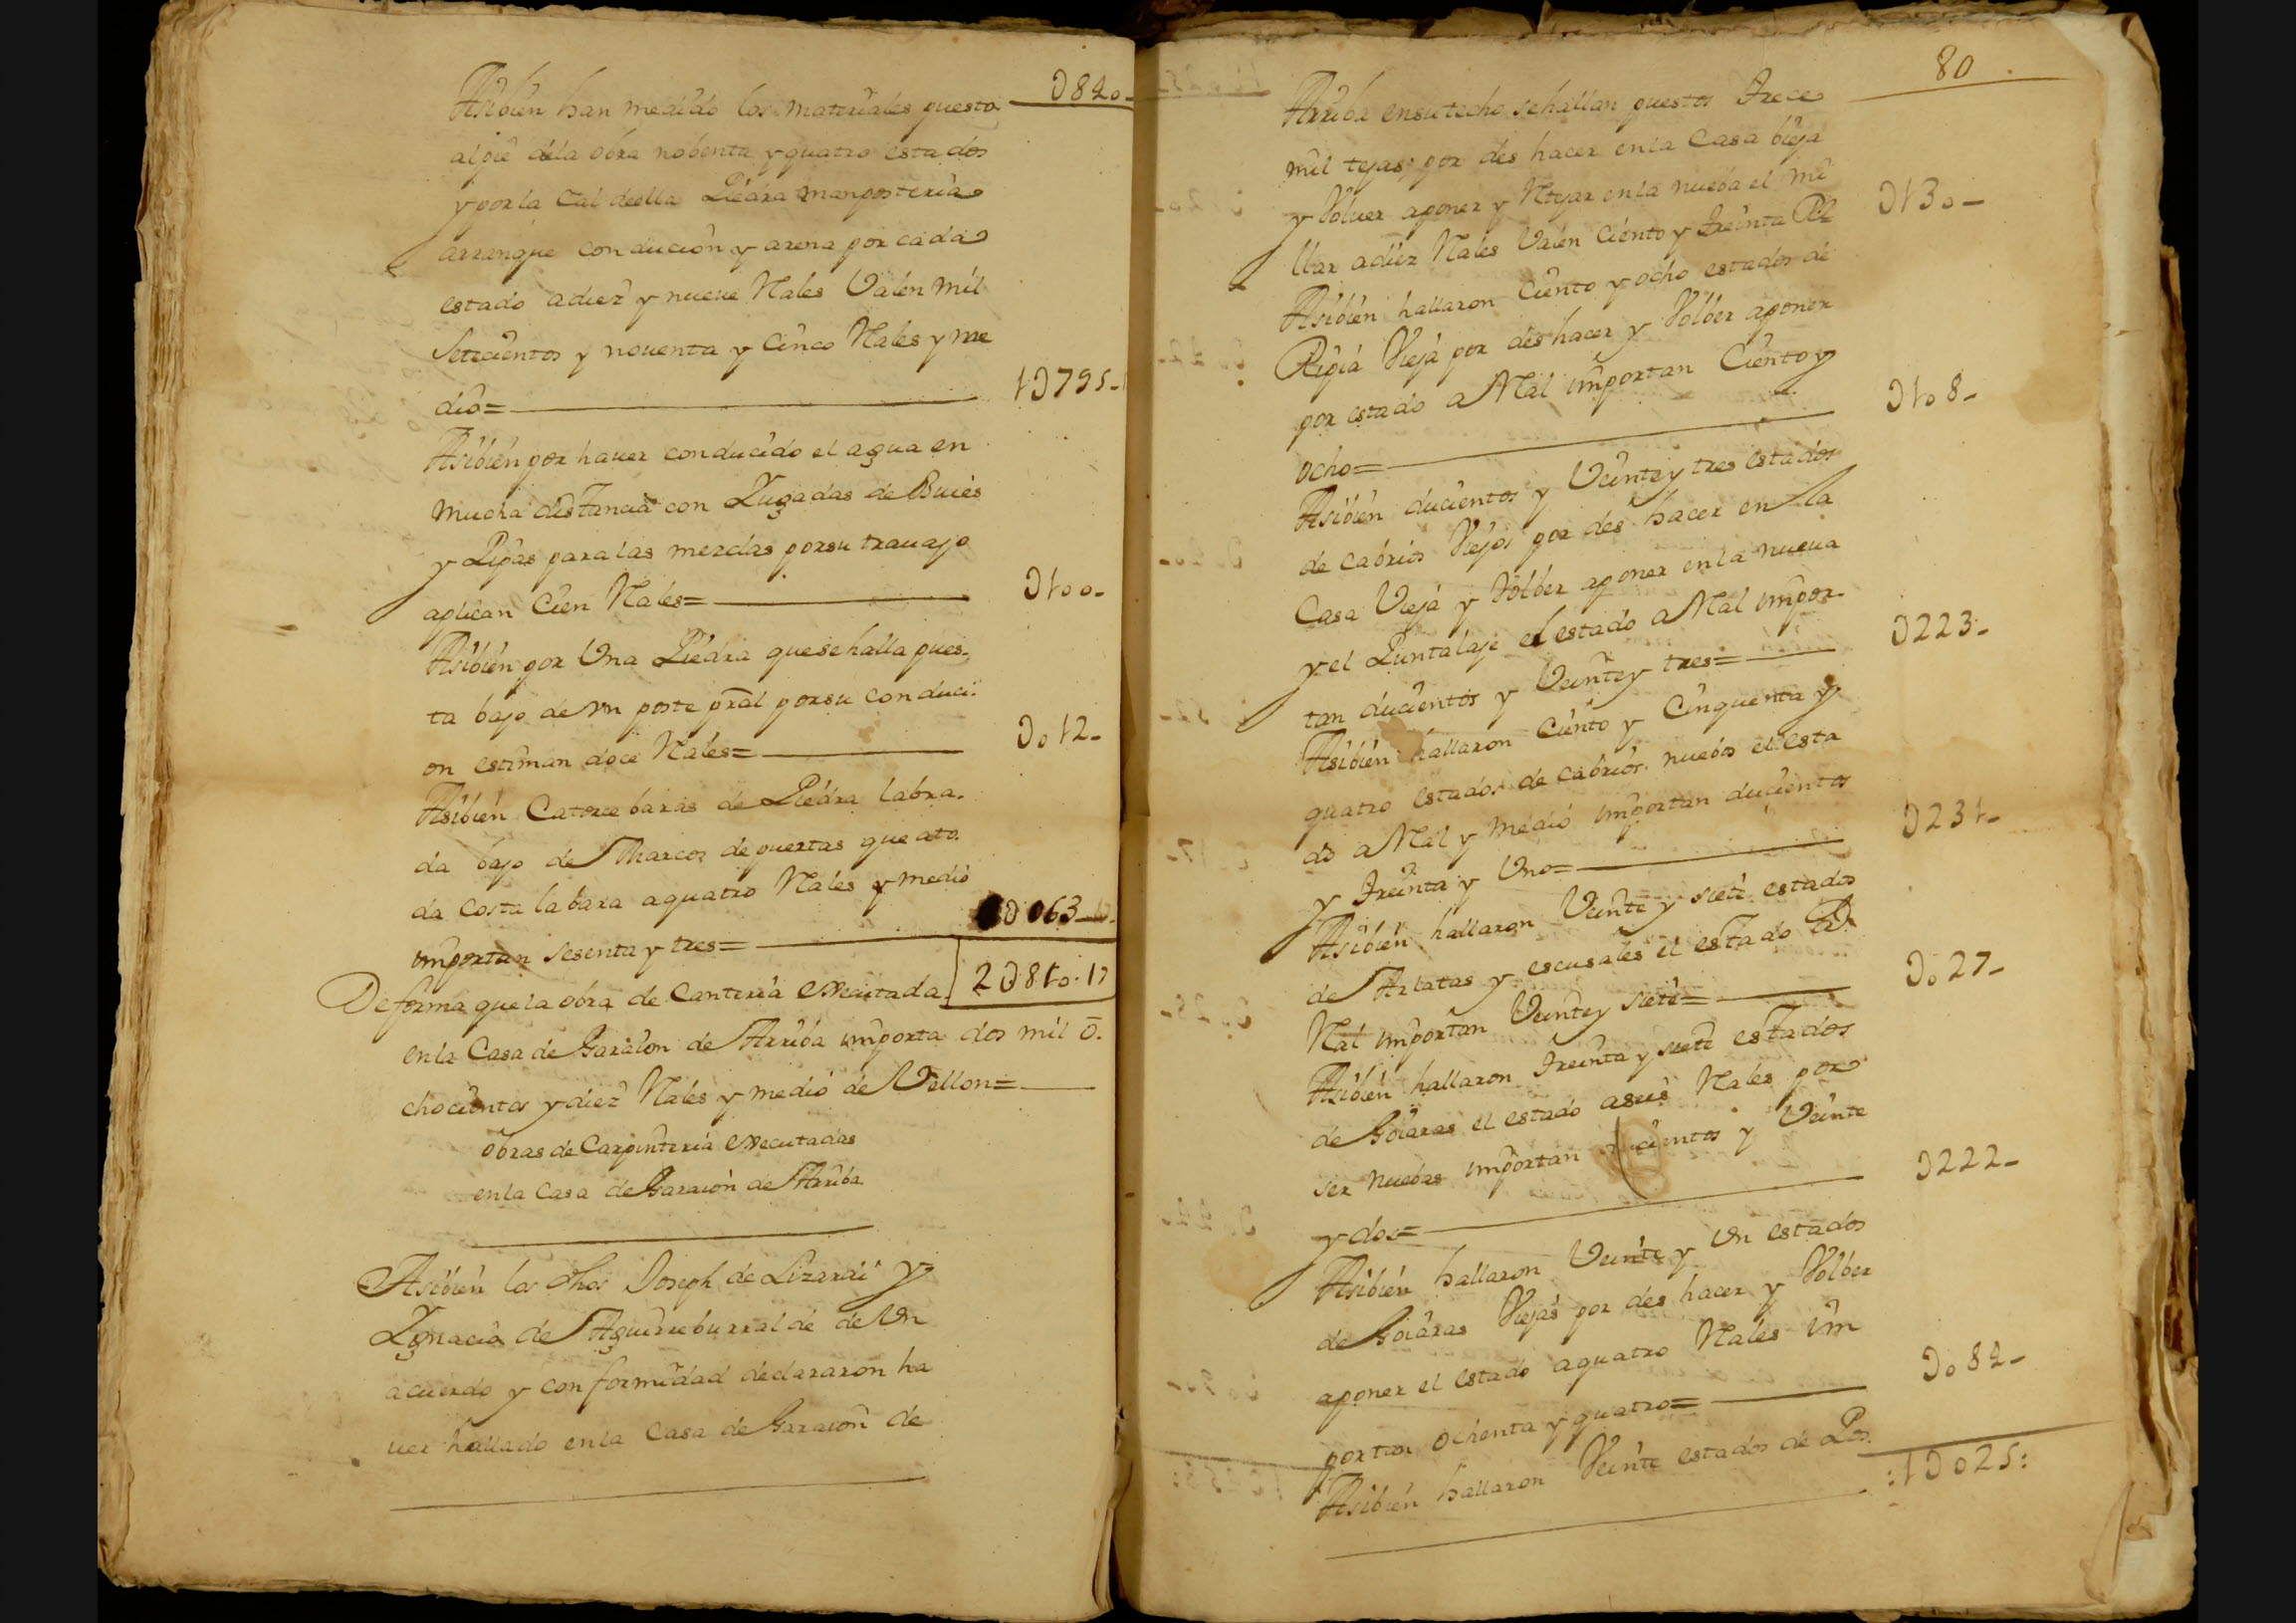 Asibien han medido los materiales puesto
D840-
al pie dela obra nobenta y quatro estados
y por la Cal de ella Piedra manposteria
arranque conducion y arena por cada
estado a diez y nueve Rales Valen mil
Setecientos y noventa y Cinco Rales y me
dio=
1D795-
Asibien por haver conducido el agua en
mucha distancia con Yugadas de Buies
y Pipas para las mezclas por su travajo
aplican Cien Rales=
D100-
Asibien por Una Piedra que se halla pues-
ta bajo de vn poste pral por su conduci-
on estiman doce Rales=
D012-
Asibien Catorce baras de Piedra labra-
da bajo de Marcos de puertas que ato-
da costa la bara a quatro Rales y medio
importan sesenta y tres=
D063-
De forma que la obra de Canteria executada
2D810-17
en la Casa de Garaion de Arriba importa dos mil o-
chocientos y diez Rales y medio de Vellon=
Obras de Carpinteria executadas
en la Casa de Garaion de Arriba
Asibien los dhos Joseph de Lizardi y
Ygnacio de Aguirreburralde de Un
acuerdo y conformidad declararon ha
ver hallado en la Casa de Garaion de
80
Arriba en su techo se hallan puestos Trece
mil tejas; por des hacer en la Casa bieja
y Volver a poner y Retejar en la nueba el mi
llar a diez Rales Valen Ciento y Treinta Rs
D130-
Asibien hallaron Ciento y ocho estados de
Ripia Vieja por des hacer y Volber a poner
por estado a Ral importan Ciento y
ocho=
D108-
Asibien ducientos y Veinte y tres estados
de Cabrios Viejos por des hacer en la
Casa Vieja y Volber a poner en la nueva
y el Puntalaje el estado a Ral impor-
tan ducientos y Veinte y tres=
D223-
Asibien hallaron Ciento y Cinquenta y
quatro estados de Cabrios nuebos el esta
do a Ral y medio importan ducientos
y Treinta y Uno=
D231-
Asibien hallaron Veinte y siete estados
de Arlatas y escusales el estado a
Ral importan Veinte y siete=
D027-
Asibien hallaron Treinta y siete estados
de Goiaras el estado a seis Rales por
ser nuebas importan ducientos y Veinte
y dos=
D222-
Asibien hallaron Veinte y Un estados
de Goiaras Viejas por des hacer y Volber
a poner el estado a quatro Rales im
portan ochenta y quatro=
D084-
Asibien hallaron Veinte estados de Pos
:1D025: